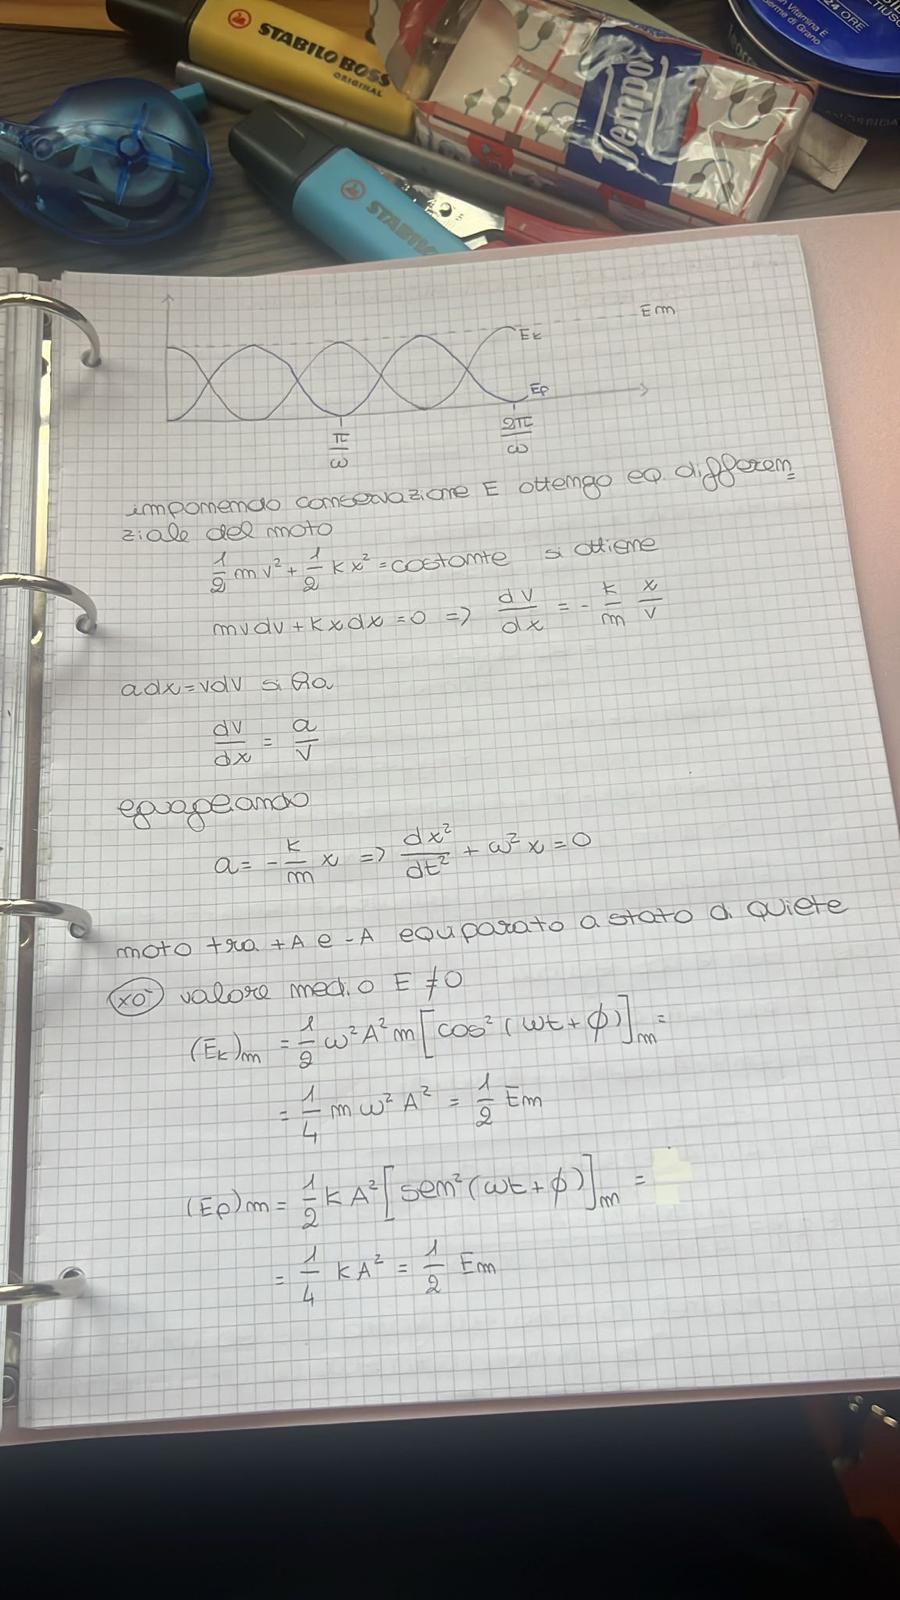 STABILO BOSS
ORIGINAL
Tempo
STABILO
24 ORE
Vitamina E
Germe di Grano
Em
Ek
Ep
π/ω
2π/ω
imponendo conservazione E ottengo eq differen
ziale del moto
1/2 mv² + 1/2 kx² = costante si ottiene
mvdv + kxdx = 0 => dv/dx = - k/m x/v
adx = vdv si ha
dv/dx = a/v
eguagliando
a = - k/m x => dx²/dt² + ω²x = 0
moto tra +A e -A equiparato a stato di quiete
xo- valore medio E ≠ 0
(Ek)m = 1/2 ω²A²m [cos²(ωt+ϕ)]m =
= 1/4 mω²A² = 1/2 Em
(Ep)m = 1/2 kA² [sen²(ωt+ϕ)]m =
= 1/4 kA² = 1/2 Em